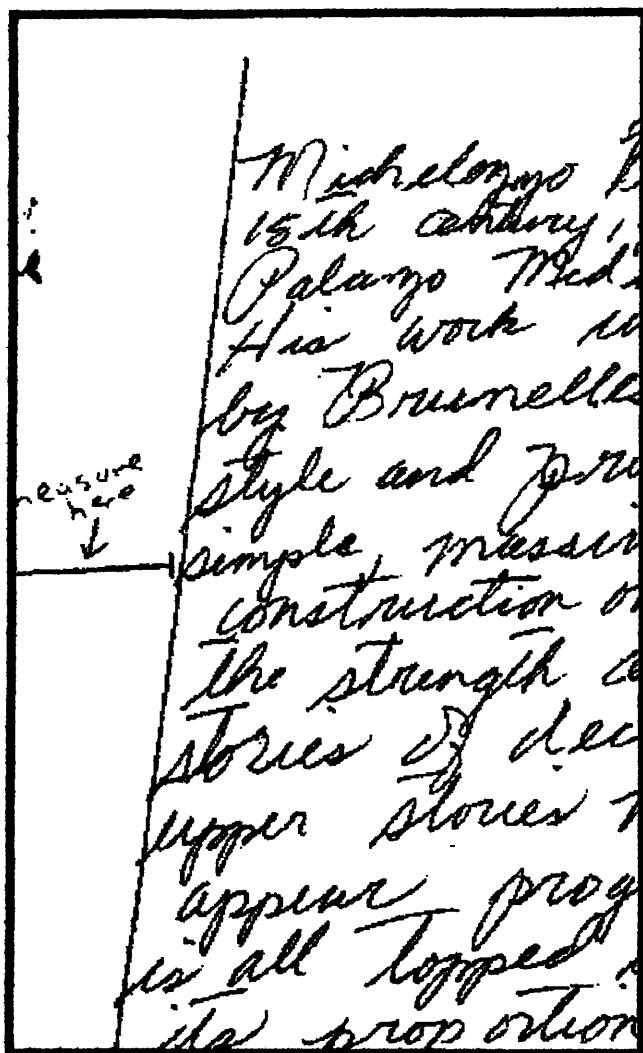 Michelozzo B
15th century,
Palazzo Medi
His work w
by Brunelles
style and pru
measure
here
simple, massiv
construction o
the strength a
stories of dec
upper stories
appear prog
is all topped
its proportion